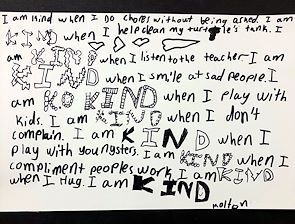 I am kind when I do chores without being asked. I am
KIND when I help clean my turtle's tank. I
am KIND when I listen to the teacher I am
KIND when I smile at sad people. I
am KO KIND when I play with
kids. I am KIND when I don't
complain. I am KIND when I
play with youngsters. I am KIND when I
compliment peoples work I am KIND
when I Hug. I am KIND
Kolton